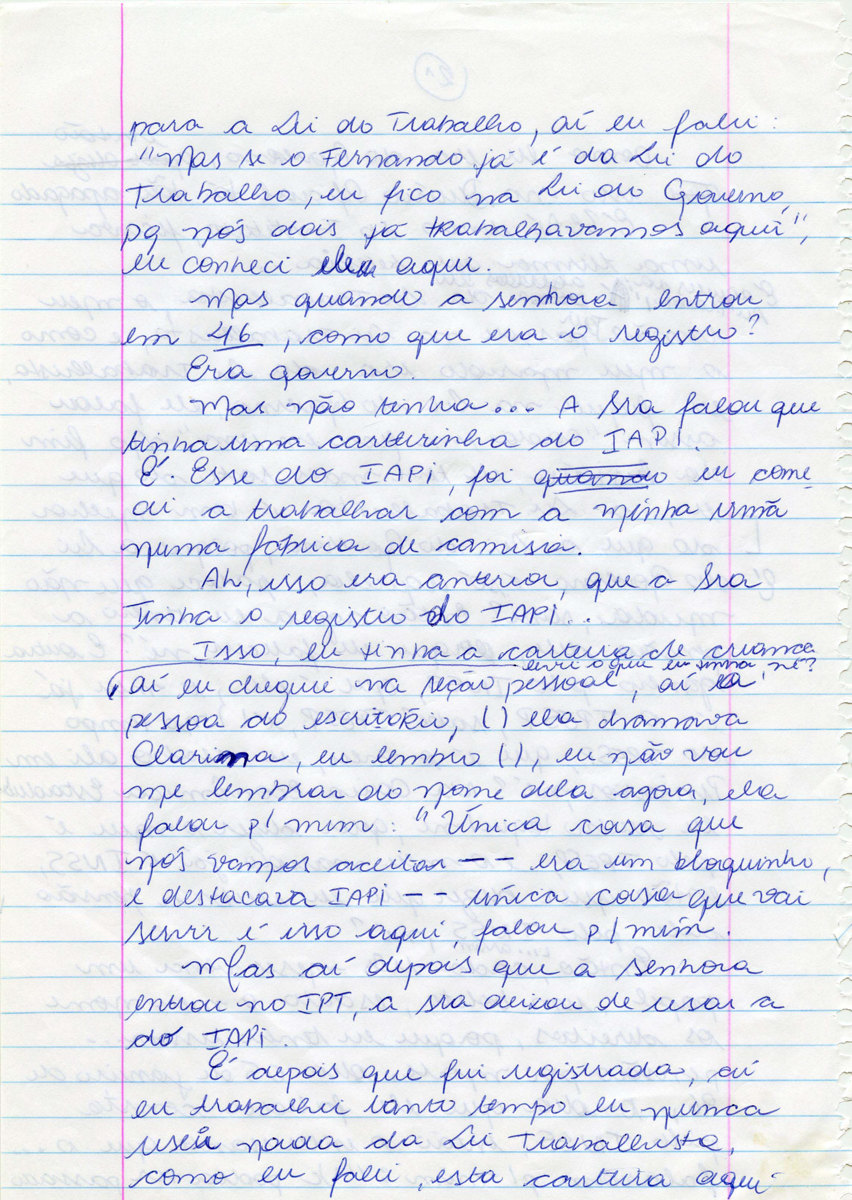 21
para a Lei do Trabalho, aí eu falei:
"Mas se o Fernando já é da Lei do
Trabalho, eu fico na Lei do Governo,
pq nós dois já trabalhavamos aqui",
eu conheci ele aqui.
Mas quando a senhora entrou
em 46, como que era o registro?
Era governo.
Mas não tinha... A Sra falou que
tinha uma carteirinha do IAPI.
É. Esse do IAPi, foi quando eu come
çei a trabalhar com a minha irmã
numa fábrica de camisa.
Ah, isso era anterior, que a Sra
Tinha o registro do IAPi...
Isso, eu tinha a carteira de criança
entrei o que eu tinha, né?
aí eu cheguei na seção pessoal, aí a
pessoa do escritório, ( ) ela chamava
Clarinna, eu lembro ( ), eu não vou
me lembrar do nome dela agora, ela
falou p/ mim: "Única coisa que
nós vamos aceitar -- era um bloquinho,
e destacava IAPi -- única coisa que vai
servir é isso aqui, falou p/ mim.
Mas aí depois que a senhora
entrou no IPT, a sra deixou de usar a
do IAPi.
É depois que fui registrada, aí
eu trabalhei tanto tempo eu nunca
usei nada da Lei Trabalhista,
como eu falei, esta carteira aqui